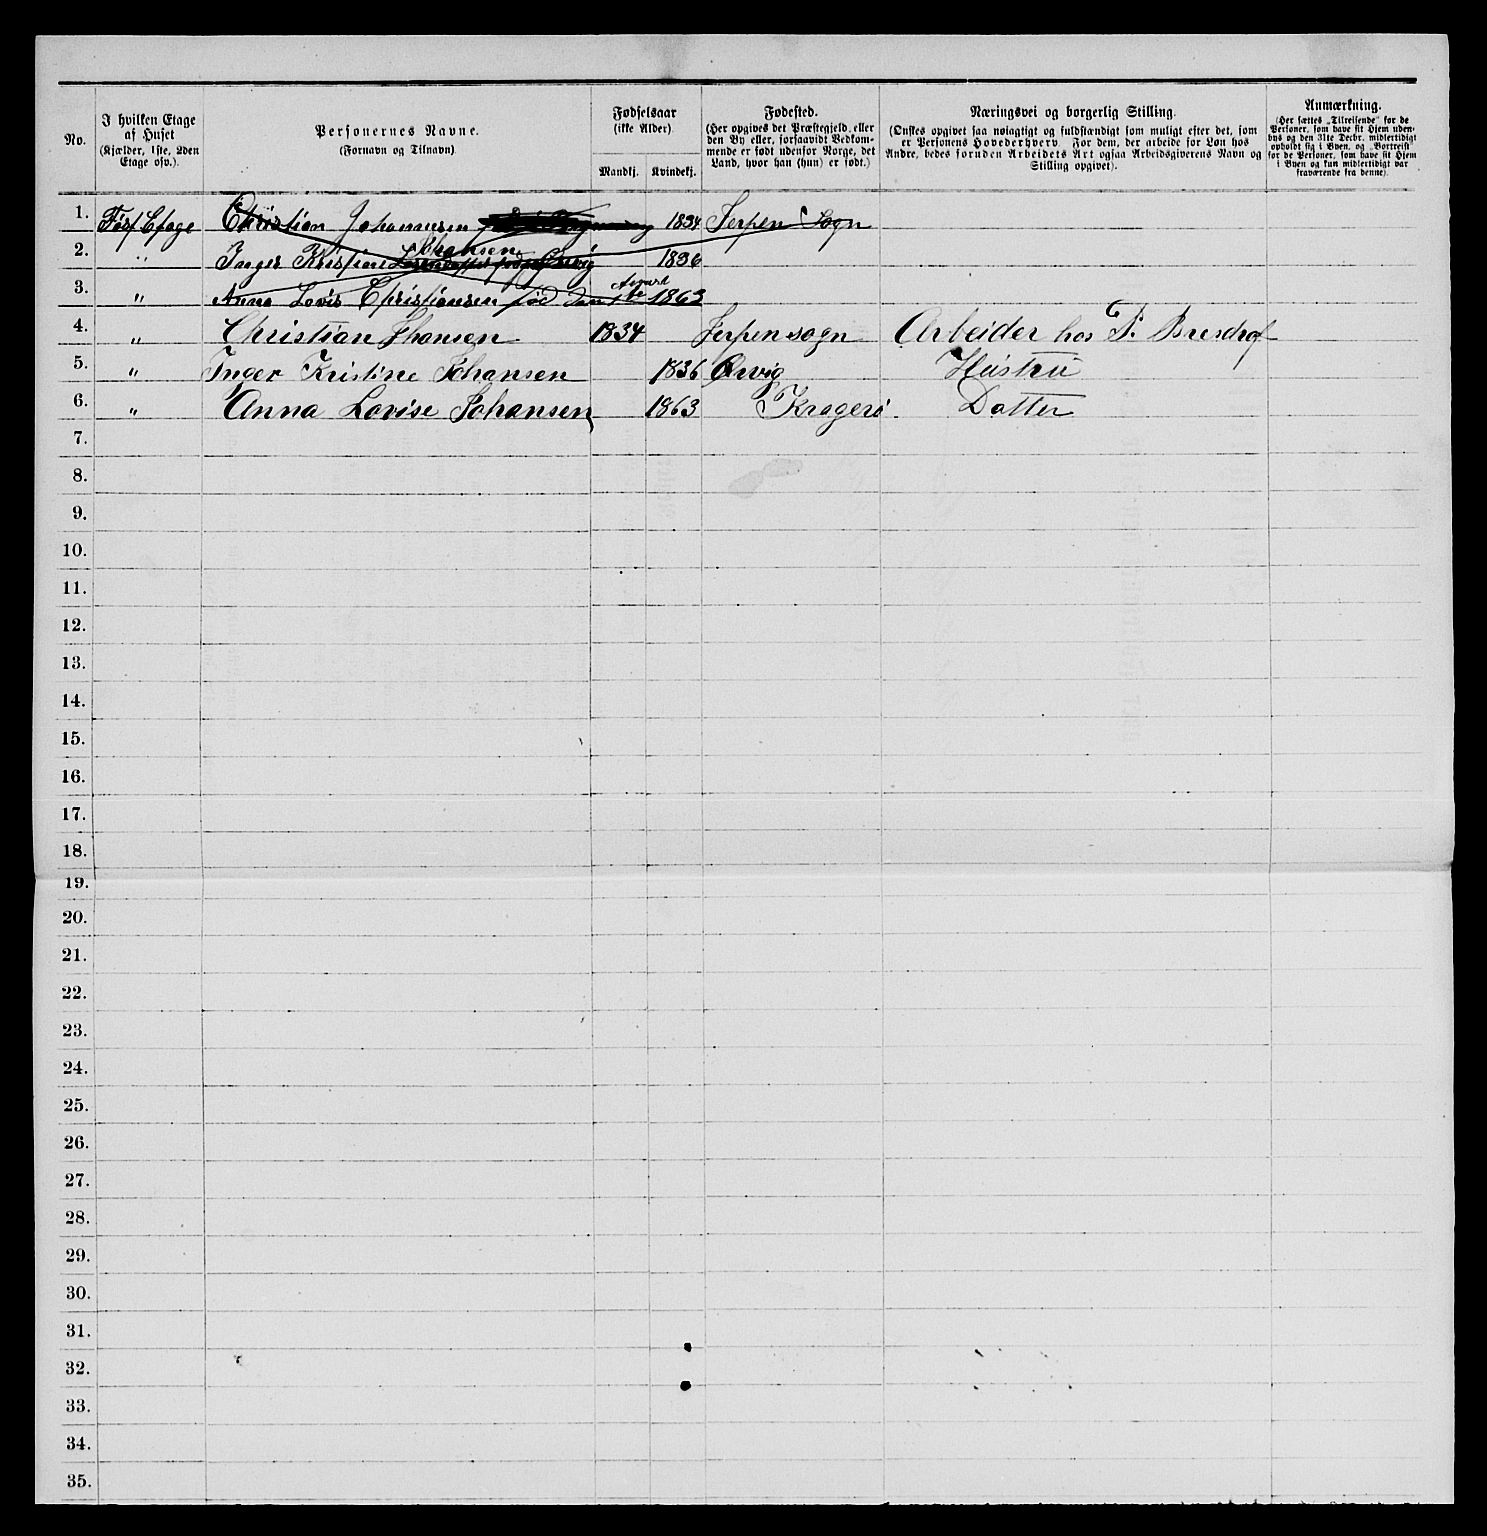 No.
I hvilken Etage af Huset
(Kjælder, 1ste, 2den Etage osv.).
Personernes Navne.
(Fornavn og Tilnavn)
Fødselsaar
(ikke Alder)
Mandkj.
Kvindekj.
Fødested.
(Her opgives det Præstegjeld, eller
den By eller, forsaavidt Vedkom-
mende er født udenfor Norge, det
Land, hvor han (hun) er født.)
Næringsvei og borgerlig Stilling.
(Ønskes opgivet saa nøiagtigt og fuldstændigt som muligt efter det, som
er Personens Hovederhverv. For dem, der arbeide for Løn hos
Andre, bedes foruden Arbeidets Art ogsaa Arbeidsgiverens Navn og
Stilling opgivet).
Anmærkning.
(Her sættes „Tilreisende“ for de
Personer, som have sit Hjem uden-
bys og den 31te Decbr. midlertidigt
opholdt sig i Byen, og „Bortreist“
for de Personer, som have sit Hjem
i Byen og kun midlertidigt var
fraværende fra denne).
1. Føst Etage Christian Johannesen 1834 Jerpen Sogn
2. " Inger Kristine Johansen 1836
3. " Anna Lovis Christiansen fød den 1863
4. " Christian Jhansen 1834 Jerpen sogn Arbeider hos P.
5. " Inger Kristine Johansen 1836 Ørvig Hustru
6. " Anna Lovise Johansen 1863 Kragerø. Datter
7.
8.
9.
10.
11.
12.
13.
14.
15.
16.
17.
18.
19.
20.
21.
22.
23.
24.
25.
26.
27.
28.
29.
30.
31.
32.
33.
34.
35.